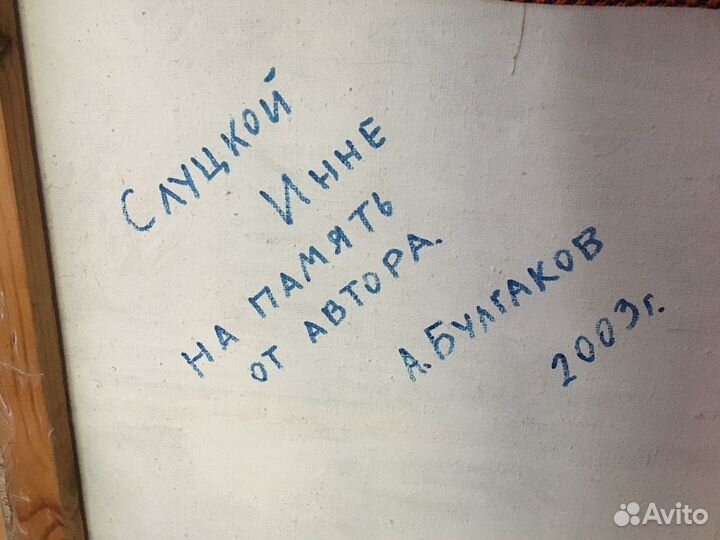 Слуцкой
Инне
на память
от автора.
А. Булгаков
2003г.
Avito